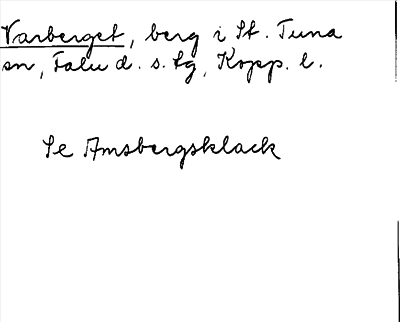 Varberget, berg i St. Tuna
sn, Falu d. s. tg, Kopp. l.
Se Amsbergsklack